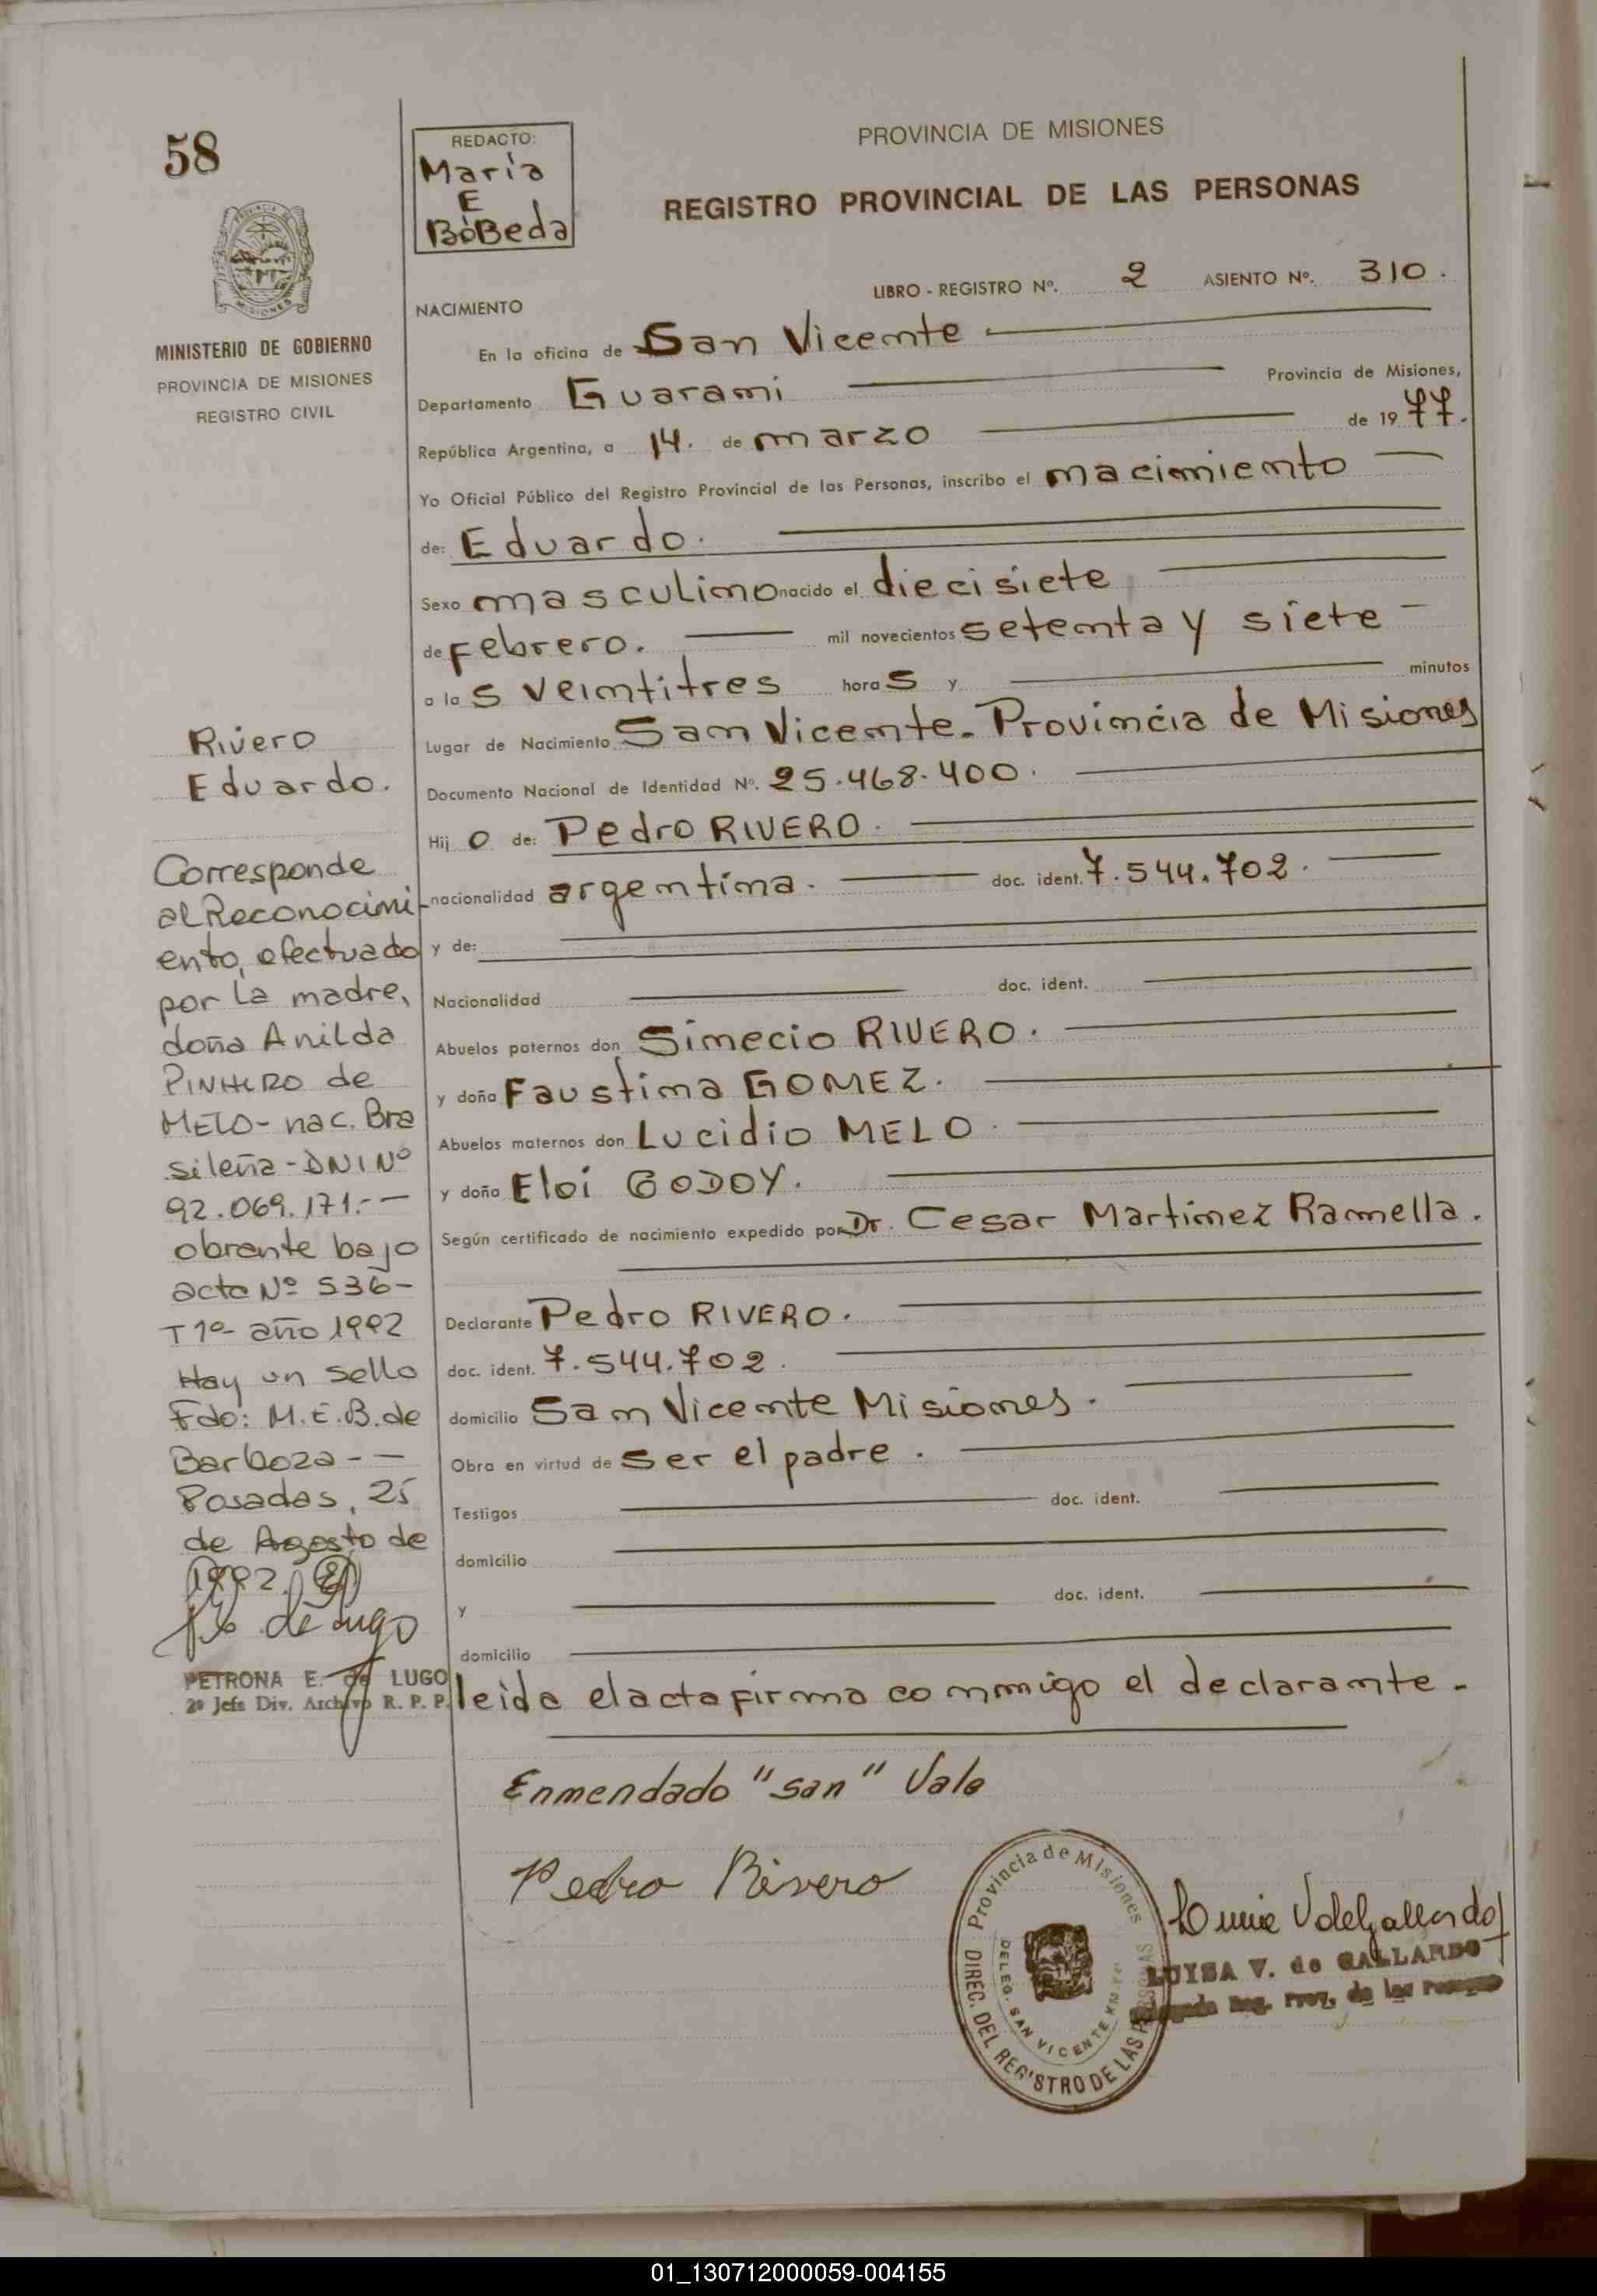 58
REDACTO:
Maria
E
BóBeda
PROVINCIA DE MISIONES
REGISTRO PROVINCIAL DE LAS PERSONAS
PROVINCIA DE
MISIONES
MINISTERIO DE GOBIERNO
PROVINCIA DE MISIONES
REGISTRO CIVIL
LIBRO - REGISTRO Nº. 2 ASIENTO Nº. 310.
NACIMIENTO
En la oficina de San Vicente
Departamento Guarani Provincia de Misiones,
República Argentina, a 14. de marzo de 1977.
Yo Oficial Público del Registro Provincial de las Personas, inscribo el nacimiento
de: Eduardo.
Sexo masculino nacido el diecisiete
de Febrero. mil novecientos setenta y siete
a las veintitres horas y minutos
Lugar de Nacimiento San Vicente. Provincia de Misiones
Documento Nacional de Identidad Nº. 25.468.400.
Hijo de: Pedro RIVERO.
nacionalidad argentina. doc. ident. 7.544.702.
y de:
Nacionalidad doc. ident.
Abuelos paternos don Simecio RIVERO.
y doña Faustina GOMEZ.
Abuelos maternos don Lucidio MELO.
y doña Eloi GODOY.
Según certificado de nacimiento expedido por Dr. Cesar Martinez Ramella.
Declarante Pedro RIVERO.
doc. ident. 7.544.702.
domicilio San Vicente Misiones.
Obra en virtud de ser el padre.
Testigos doc. ident.
domicilio
y doc. ident.
domicilio
leida el acta firma conmigo el declarante.
Enmendado "san" Vale
Pedro Rivero
Rivero
Eduardo.
Corresponde
al Reconocimi-
ento, efectuado
por la madre,
doña Anilda
PINHERO de
MELO- nac. Bra
sileña - DNI Nº
92.069.171.-
obrante bajo
acta Nº 536-
T 1º año 1992
Hay un sello
Fdo: M.E.B. de
Barboza - -
Posadas, 25
de Agosto de
1992.
de Lugo
PETRONA E. de LUGO
2º Jefe Div. Archivo R. P. P.
Provincia de Misiones
DIREC. DEL REGISTRO DE LAS PERSONAS
DELEG. SAN VICENTE
V de Gallardo
LUISA V. de GALLARDO
Reg. Prov. de las Personas
01_130712000059-004155